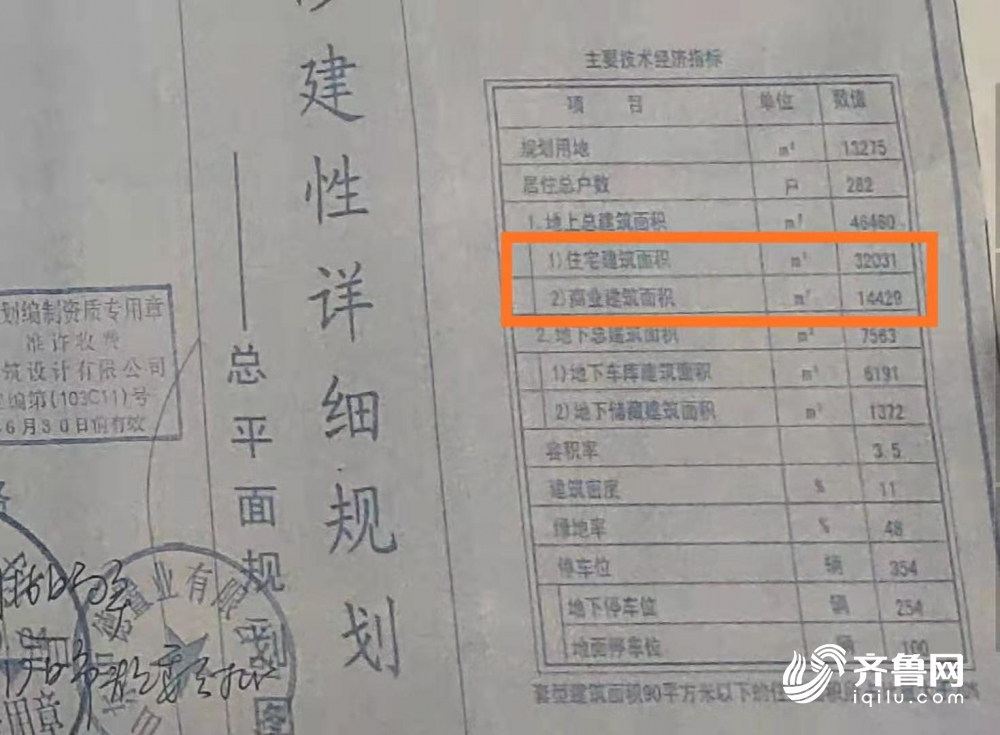 修建性详细规划
——总平面规划图
主要技术经济指标
项 目 单位 数值
规划用地 m² 13275
居住总户数 户 282
1.地上总建筑面积 m² 46460
1)住宅建筑面积 m² 32031
2)商业建筑面积 m² 14429
2.地下总建筑面积 m² 7563
1)地下车库建筑面积 m² 6191
2)地下储藏建筑面积 m² 1372
容积率 3.5
建筑密度 % 11
绿地率 % 48
停车位 辆 354
地下停车位 辆 254
地面停车位 辆 100
套型建筑面积90平方米以下的住
划编制资质专用章
准许收费
筑设计有限公司
编第(103C11)号
6月30日前有效
置业有限
用章
齐鲁网
iqilu.com